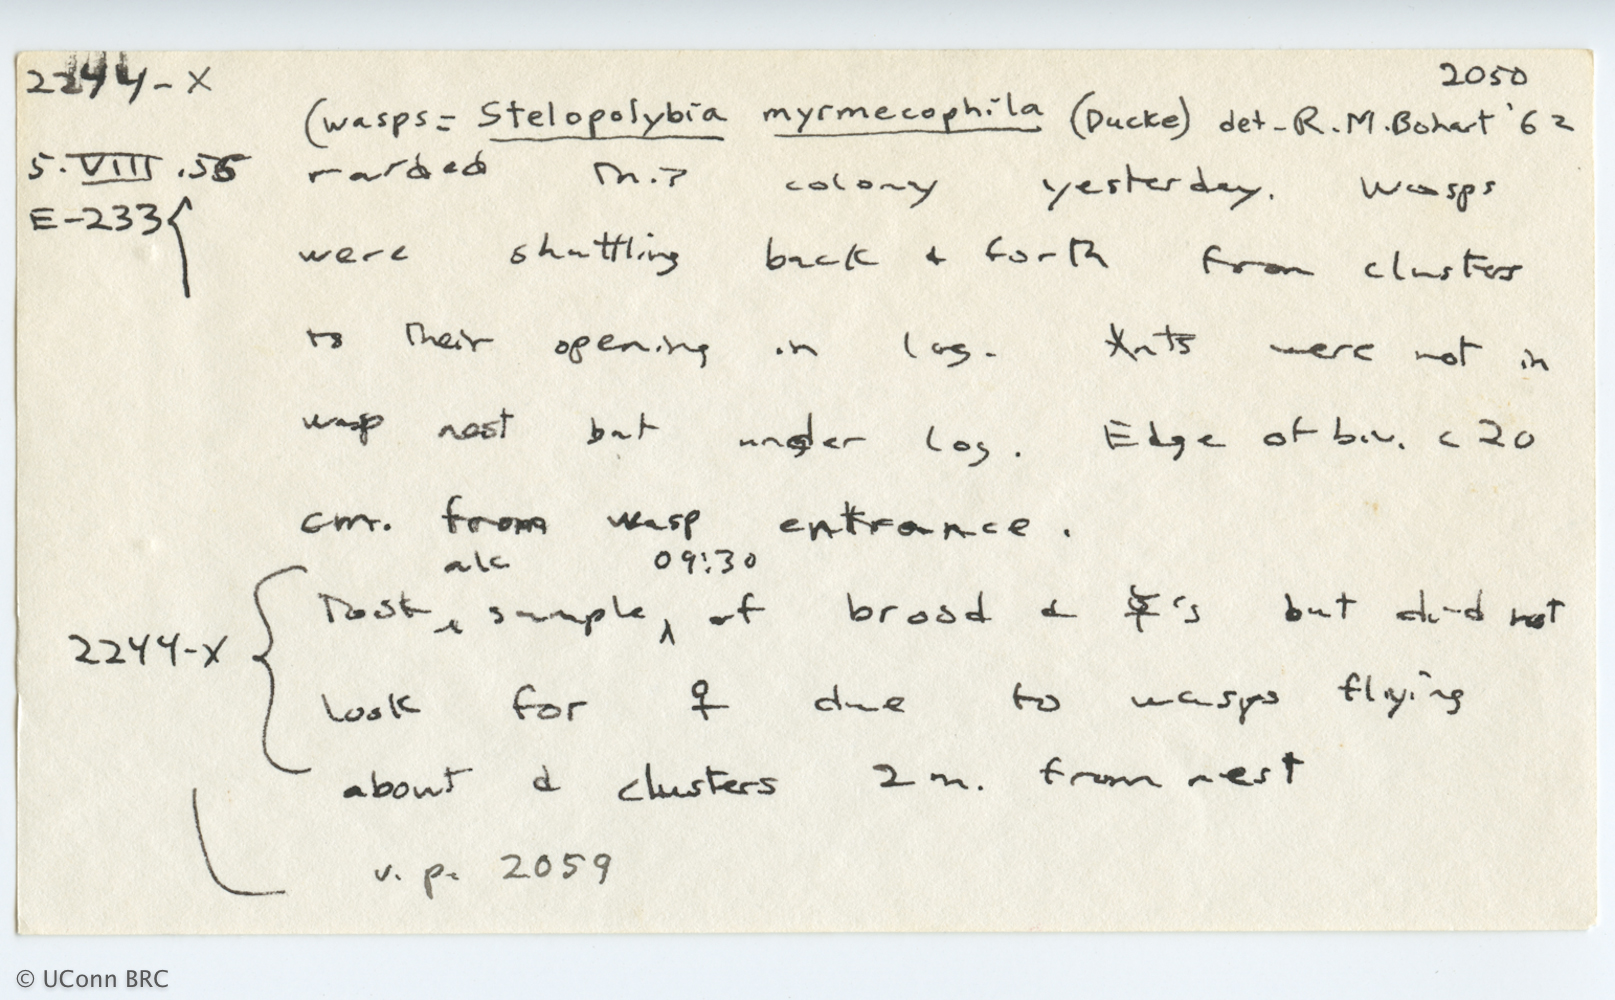 2244-X 2050
(wasps = Stelopolybia myrmecophila (Ducke) det. R.M.Bohart '62
5.VIII.56 raided colony yesterday. Wasps
E-233 { were shuttling back & forth from clusters
to their opening in log. Ants were not in
wasp nest but under log. Edge of biv. c 20
cm. from wasp entrance.
alc 09:30
2244-X { Took sample of brood & ☿'s but did not
look for ♀ due to wasps flying
about & clusters 2 m. from nest
v. p. 2059
© UConn BRC